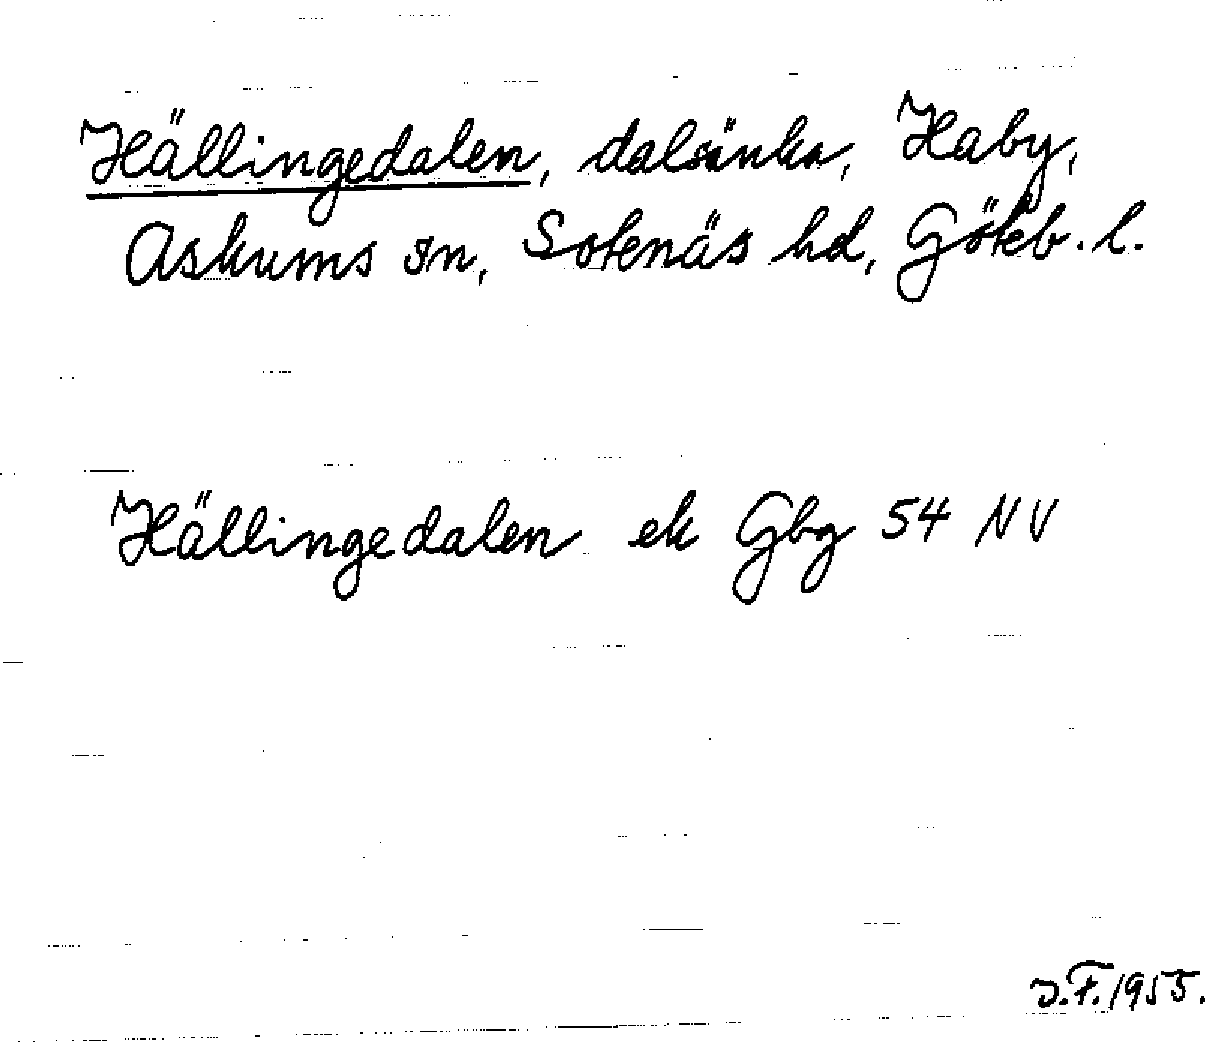 Hällingedalen, dalsänka, Haby,
Askums sn, Sotenäs hd, Göteb. l.
Hällingedalen ek Gbg 54 NV
J.F. 1955.